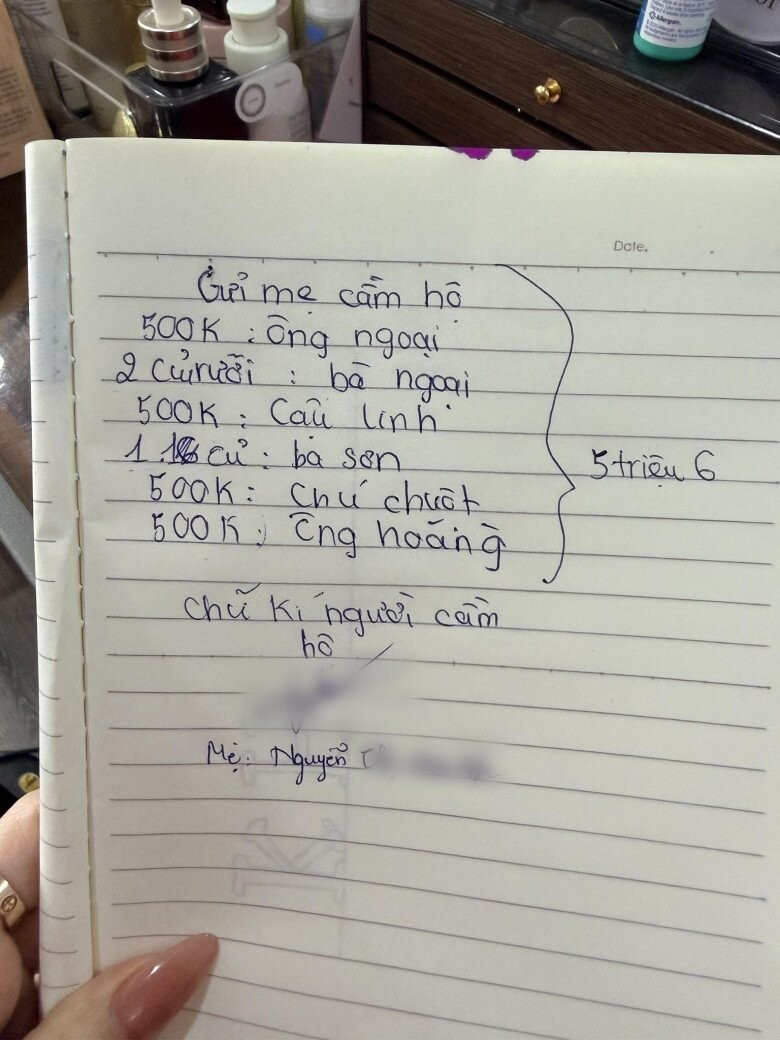 Allergan.
Date.
Gửi mẹ cầm hộ
500K : Ông ngoại
2 củ rưỡi : bà ngoại
500K : Cậu Linh
1.1 củ : bà sơn
500K : Chú chuột
500K : Ông hoàng
5 triệu 6
Chữ kí người cầm
hộ
Mẹ: Nguyễn